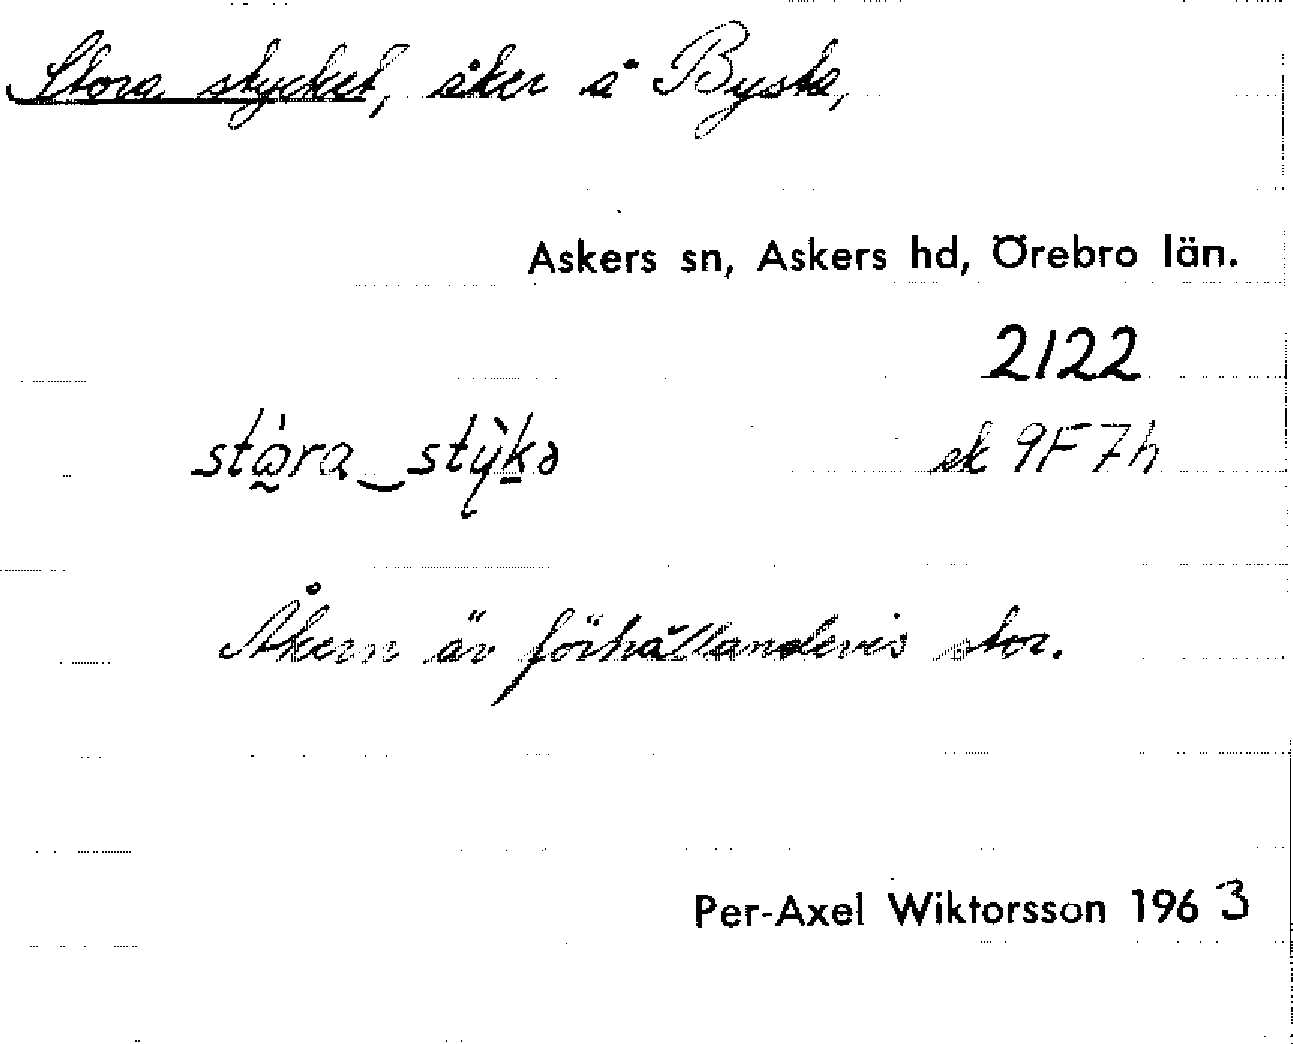 Stora stycket, åker å Bysta,
Askers sn, Askers hd, Örebro län.
2122
stɷ̀ra‿stỳkə
ek 9F7h
Åkern är förhållandevis stor.
Per-Axel Wiktorsson 1963